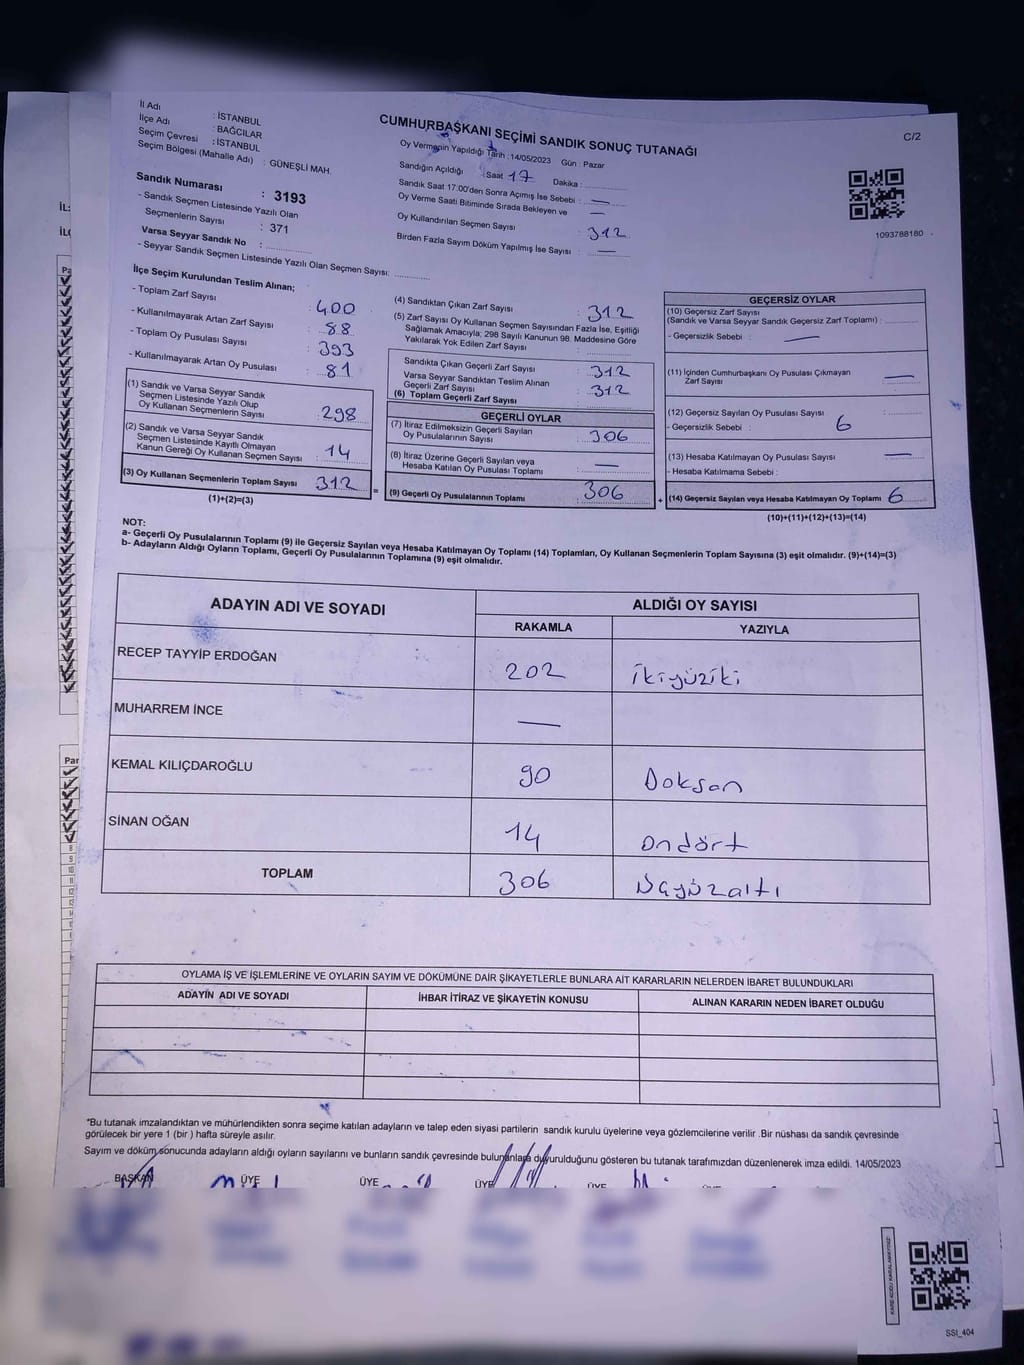 İl Adı : İSTANBUL
İlçe Adı : BAĞCILAR
Seçim Çevresi : İSTANBUL
Seçim Bölgesi (Mahalle Adı) : GÜNEŞLİ MAH.
Sandık Numarası : 3193
- Sandık Seçmen Listesinde Yazılı Olan
Seçmenlerin Sayısı : 371
Varsa Seyyar Sandık No :
- Seyyar Sandık Seçmen Listesinde Yazılı Olan Seçmen Sayısı:
CUMHURBAŞKANI SEÇİMİ SANDIK SONUÇ TUTANAĞI
Oy Vermenin Yapıldığı Tarih : 14/05/2023 Gün : Pazar
Sandığın Açıldığı Saat 17 Dakika :
Sandık Saat 17.00'den Sonra Açımış İse Sebebi : —
Oy Verme Saati Bitiminde Sırada Bekleyen ve —
Oy Kullandırılan Seçmen Sayısı : 312
Birden Fazla Sayım Döküm Yapılmış İse Sayısı : —
C/2
1093788180
İL:
İLÇ
İlçe Seçim Kurulundan Teslim Alınan;
- Toplam Zarf Sayısı : 400
- Kullanılmayarak Artan Zarf Sayısı : 88
- Toplam Oy Pusulası Sayısı : 393
- Kullanılmayarak Artan Oy Pusulası : 81
(1) Sandık ve Varsa Seyyar Sandık
Seçmen Listesinde Yazılı Olup
Oy Kullanan Seçmenlerin Sayısı : 298
(2) Sandık ve Varsa Seyyar Sandık
Seçmen Listesinde Kayıtlı Olmayan
Kanun Gereği Oy Kullanan Seçmen Sayısı : 14
(3) Oy Kullanan Seçmenlerin Toplam Sayısı 312 =
(1)+(2)=(3)
(4) Sandıktan Çıkan Zarf Sayısı : 312
(5) Zarf Sayısı Oy Kullanan Seçmen Sayısından Fazla İse, Eşitliği
Sağlamak Amacıyla; 298 Sayılı Kanunun 98. Maddesine Göre
Yakılarak Yok Edilen Zarf Sayısı :
Sandıkta Çıkan Geçerli Zarf Sayısı : 312
Varsa Seyyar Sandıktan Teslim Alınan
Geçerli Zarf Sayısı : 312
(6) Toplam Geçerli Zarf Sayısı
GEÇERLİ OYLAR
(7) İtiraz Edilmeksizin Geçerli Sayılan
Oy Pusulalarının Sayısı : 306
(8) İtiraz Üzerine Geçerli Sayılan veya
Hesaba Katılan Oy Pusulası Toplamı : —
(9) Geçerli Oy Pusulalarının Toplamı : 306 +
GEÇERSİZ OYLAR
(10) Geçersiz Zarf Sayısı
(Sandık ve Varsa Seyyar Sandık Geçersiz Zarf Toplamı) :
- Geçersizlik Sebebi : —
(11) İçinden Cumhurbaşkanı Oy Pusulası Çıkmayan
Zarf Sayısı —
(12) Geçersiz Sayılan Oy Pusulası Sayısı :
- Geçersizlik Sebebi : 6
(13) Hesaba Katılmayan Oy Pusulası Sayısı : —
- Hesaba Katılmama Sebebi :
(14) Geçersiz Sayılan veya Hesaba Katılmayan Oy Toplamı 6
(10)+(11)+(12)+(13)=(14)
NOT:
a- Geçerli Oy Pusulalarının Toplamı (9) ile Geçersiz Sayılan veya Hesaba Katılmayan Oy Toplamı (14) Toplamları, Oy Kullanan Seçmenlerin Toplam Sayısına (3) eşit olmalıdır. (9)+(14)=(3)
b- Adayların Aldığı Oyların Toplamı, Geçerli Oy Pusulalarının Toplamına (9) eşit olmalıdır.
ADAYIN ADI VE SOYADI ALDIĞI OY SAYISI
RAKAMLA YAZIYLA
RECEP TAYYİP ERDOĞAN 202 ikiyüziki
MUHARREM İNCE —
KEMAL KILIÇDAROĞLU 90 Doksan
SİNAN OĞAN 14 ondört
TOPLAM 306 üçyüzaltı
OYLAMA İŞ VE İŞLEMLERİNE VE OYLARIN SAYIM VE DÖKÜMÜNE DAİR ŞİKAYETLERLE BUNLARA AİT KARARLARIN NELERDEN İBARET BULUNDUKLARI
ADAYIN ADI VE SOYADI İHBAR İTİRAZ VE ŞİKAYETİN KONUSU ALINAN KARARIN NEDEN İBARET OLDUĞU
*Bu tutanak imzalandıktan ve mühürlendikten sonra seçime katılan adayların ve talep eden siyasi partilerin sandık kurulu üyelerine veya gözlemcilerine verilir .Bir nüshası da sandık çevresinde
görülecek bir yere 1 (bir ) hafta süreyle asılır.
Sayım ve döküm sonucunda adayların aldığı oyların sayılarını ve bunların sandık çevresinde bulunanlara duyurulduğunu gösteren bu tutanak tarafımızdan düzenlenerek imza edildi. 14/05/2023
BAŞKAN ÜYE ÜYE ÜYE ÜYE ÜYE
SSI_404